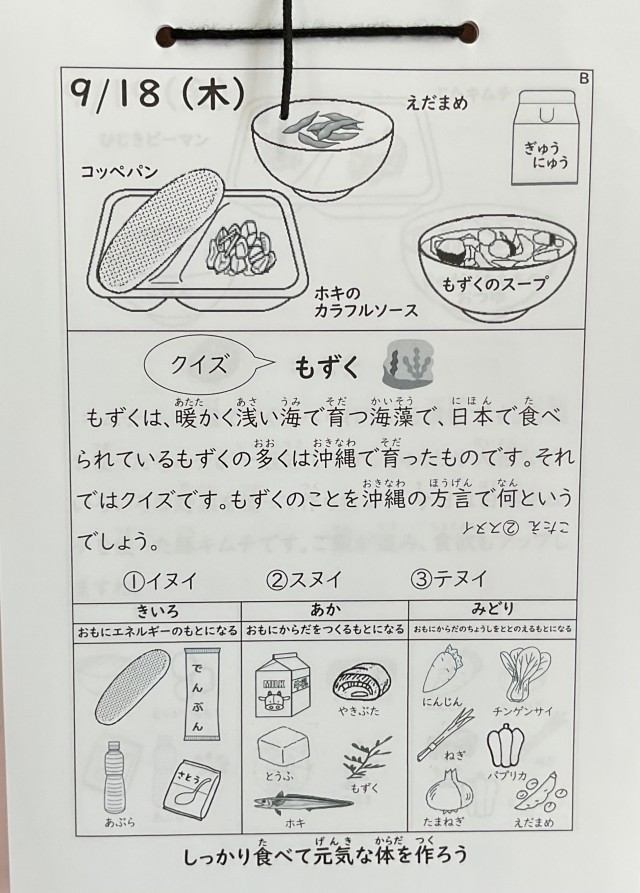 9/18（木）
B
えだまめ
ぎゅう
にゅう
コッペパン
ホキの
カラフルソース
もずくのスープ
クイズ
もずく
もずくは、暖かく浅い海で育つ海藻で、日本で食べ
られているもずくの多くは沖縄で育ったものです。それ
ではクイズです。もずくのことを沖縄の方言で何という
でしょう。
こたえ ②スヌイ
①イヌイ ②スヌイ ③テヌイ
きいろ あか みどり
おもにエネルギーのもとになる おもにからだをつくるもとになる おもにからだのちょうしをととのえるもとになる
でんぷん
MILK
やきぶた
にんじん
チンゲンサイ
さとう
とうふ
もずく
ねぎ
パプリカ
あぶら
ホキ
たまねぎ
えだまめ
しっかり食べて元気な体を作ろう